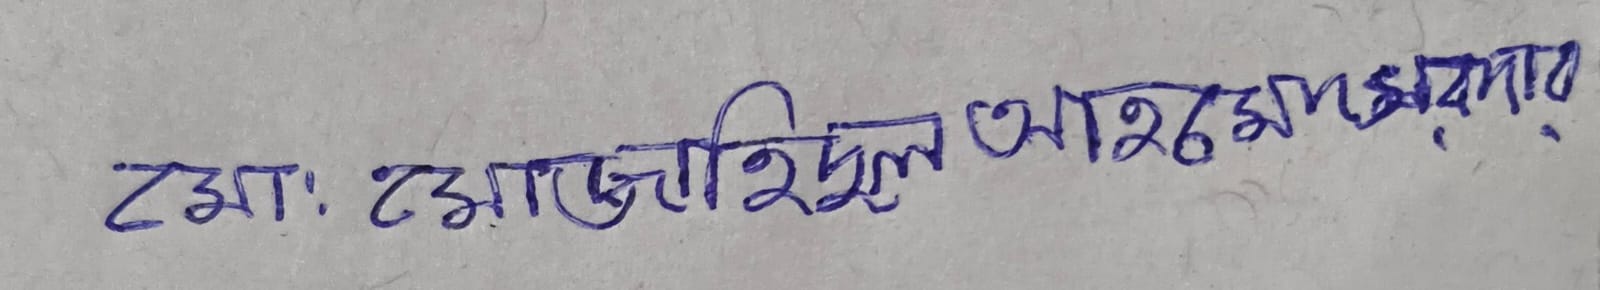 মো: মোজাহিদুল আহমেদ সরদার